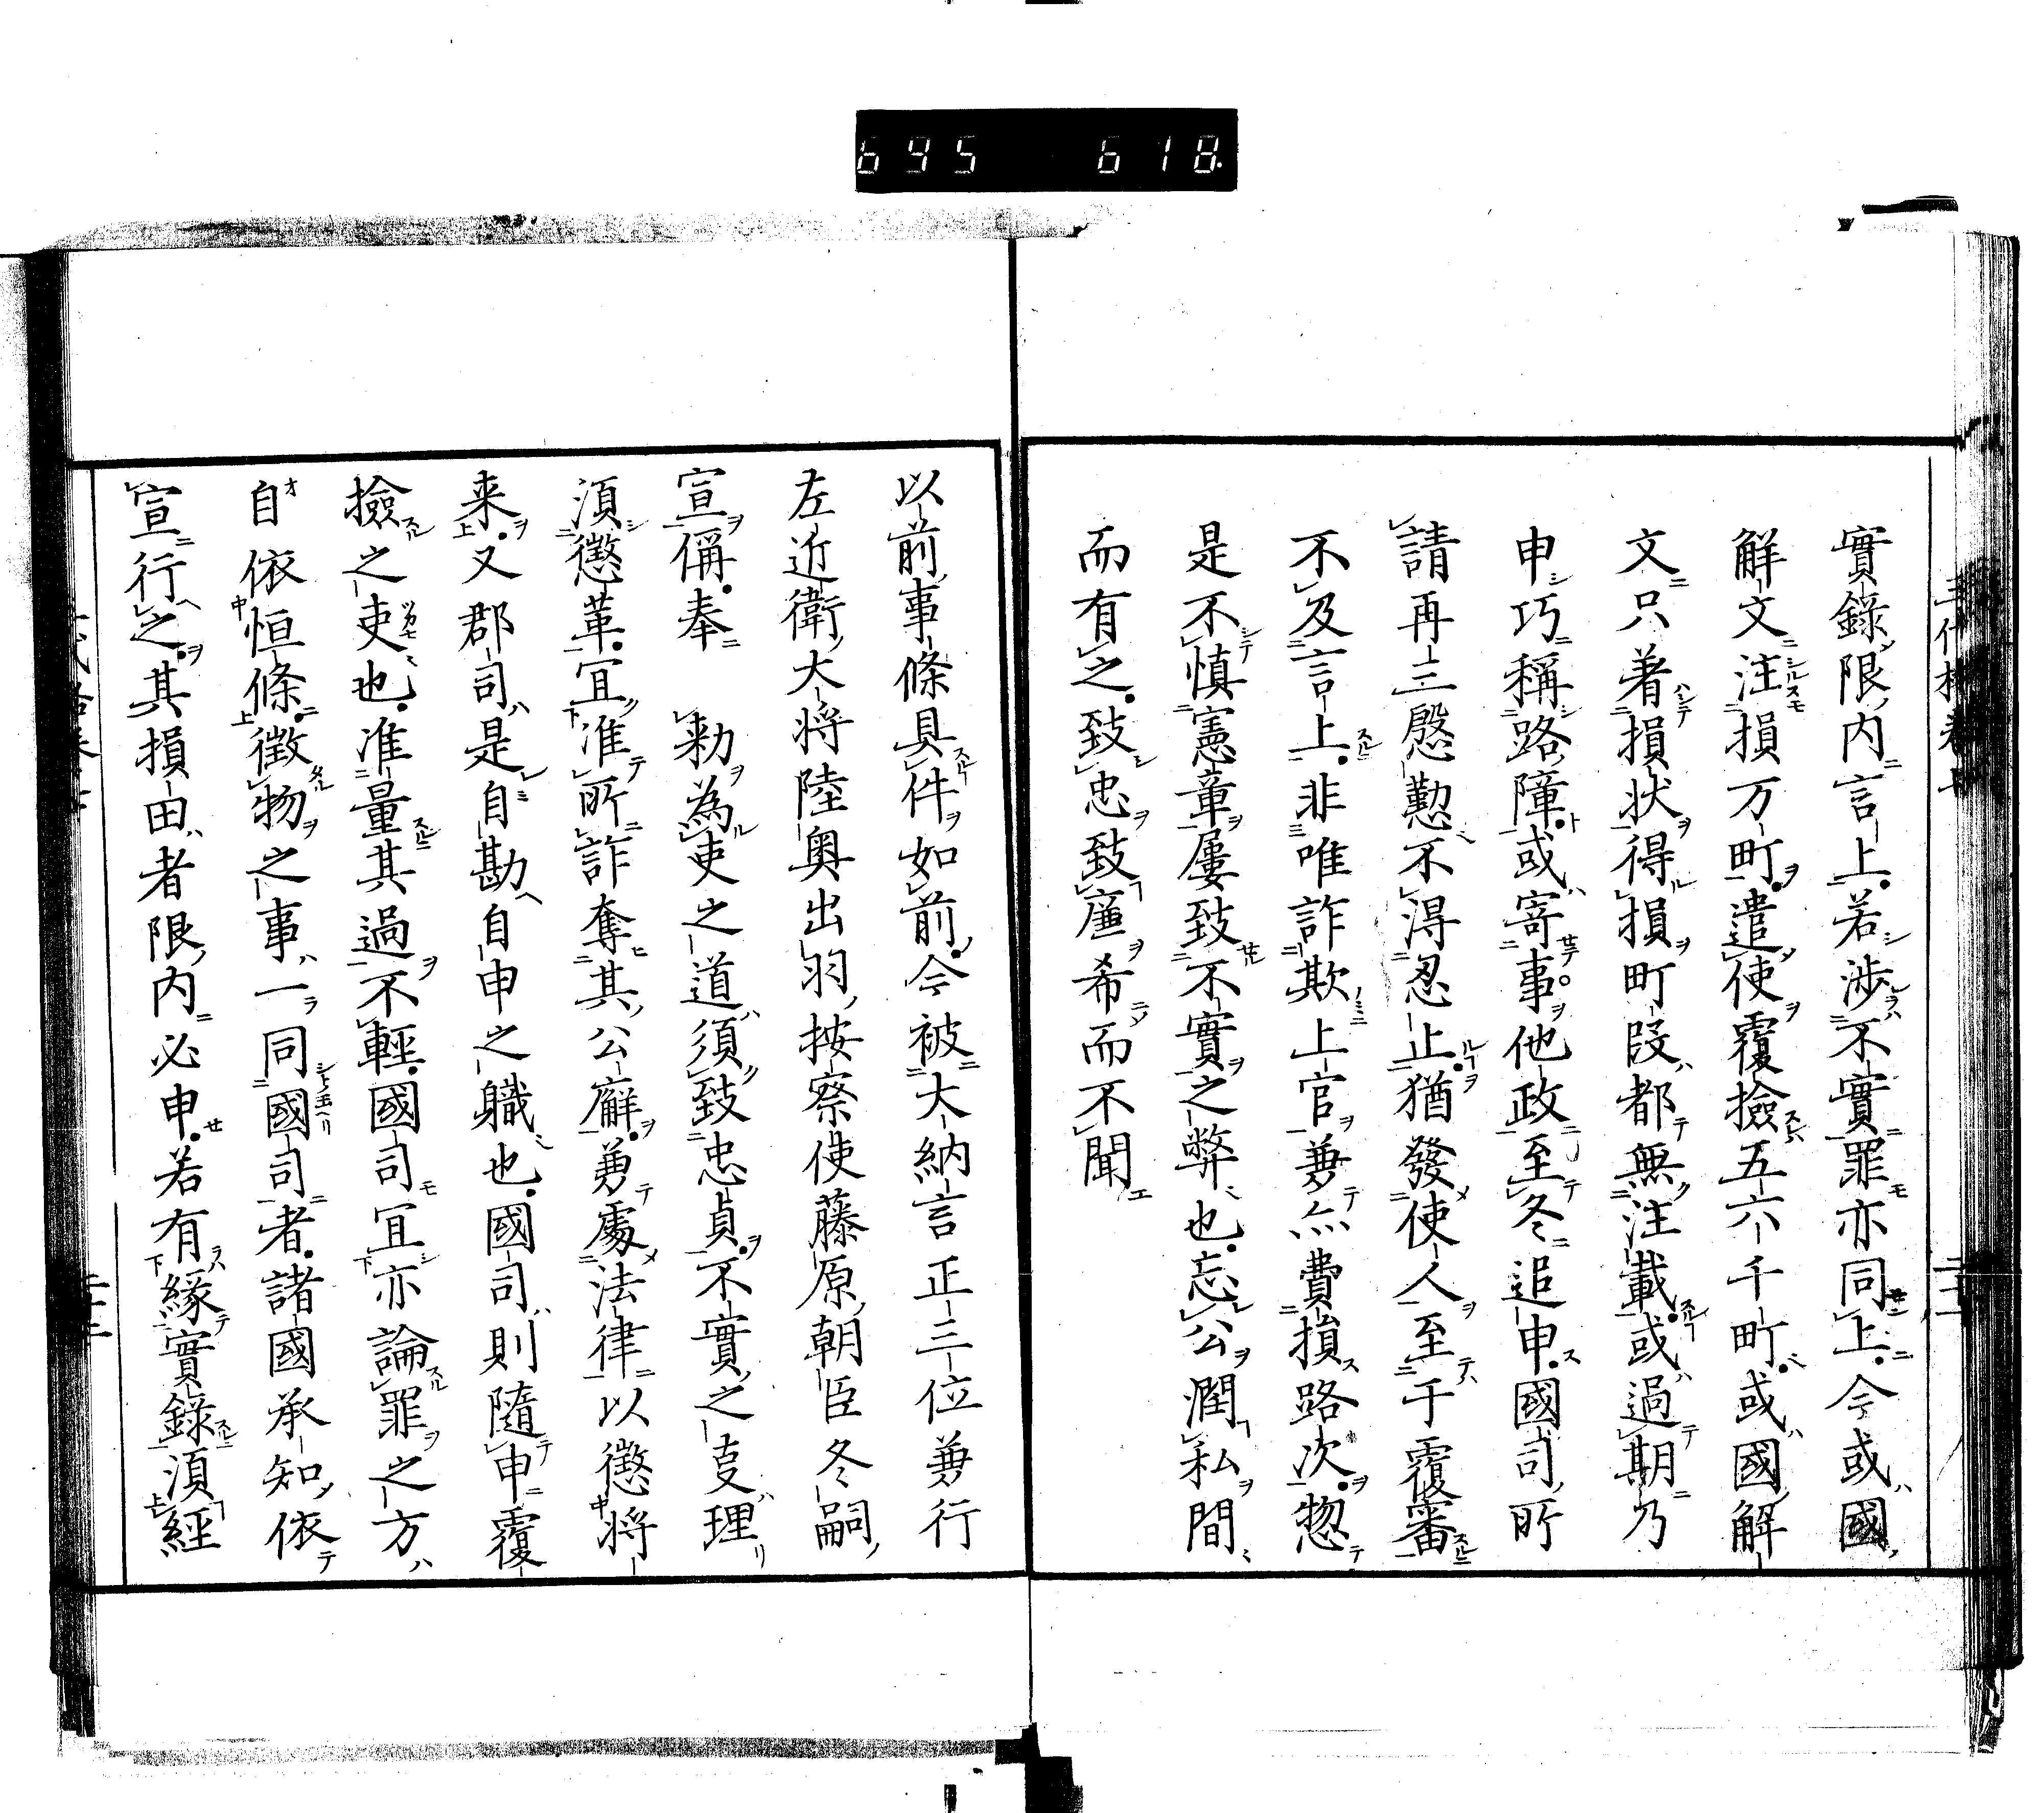 695 618
實錄限内言上若渉不實罪亦同上今或國
解文注損万町遣使覆撿五六千町或國解
文只著損状得損町段都無注載或過期乃
申巧稱路障或寄事他政至冬追申國司所
請再三慇懃不得忍止猶發使人至于覆審
不及言上非唯詐欺上官兼亦費損路次惣
是不慎憲章屢致不實之弊也忘公潤私間
而有之致忠致廉希而不聞
以前事條具件如前今被大納言正三位兼行
左近衛大将陸奥出羽按察使藤原朝臣冬嗣
宣偁奉　勅為吏之道須致忠貞不實之㕝理
須懲革宜准所詐奪其公廨兼處法律以懲将
来又郡司是自勘自申之職也國司則隨申覆
撿之吏也准量其過不輕國司宜亦論罪之方
自依恒條徴物之事一同國司者諸國承知依
宣行之其損田者限内必申若有緣實錄須經